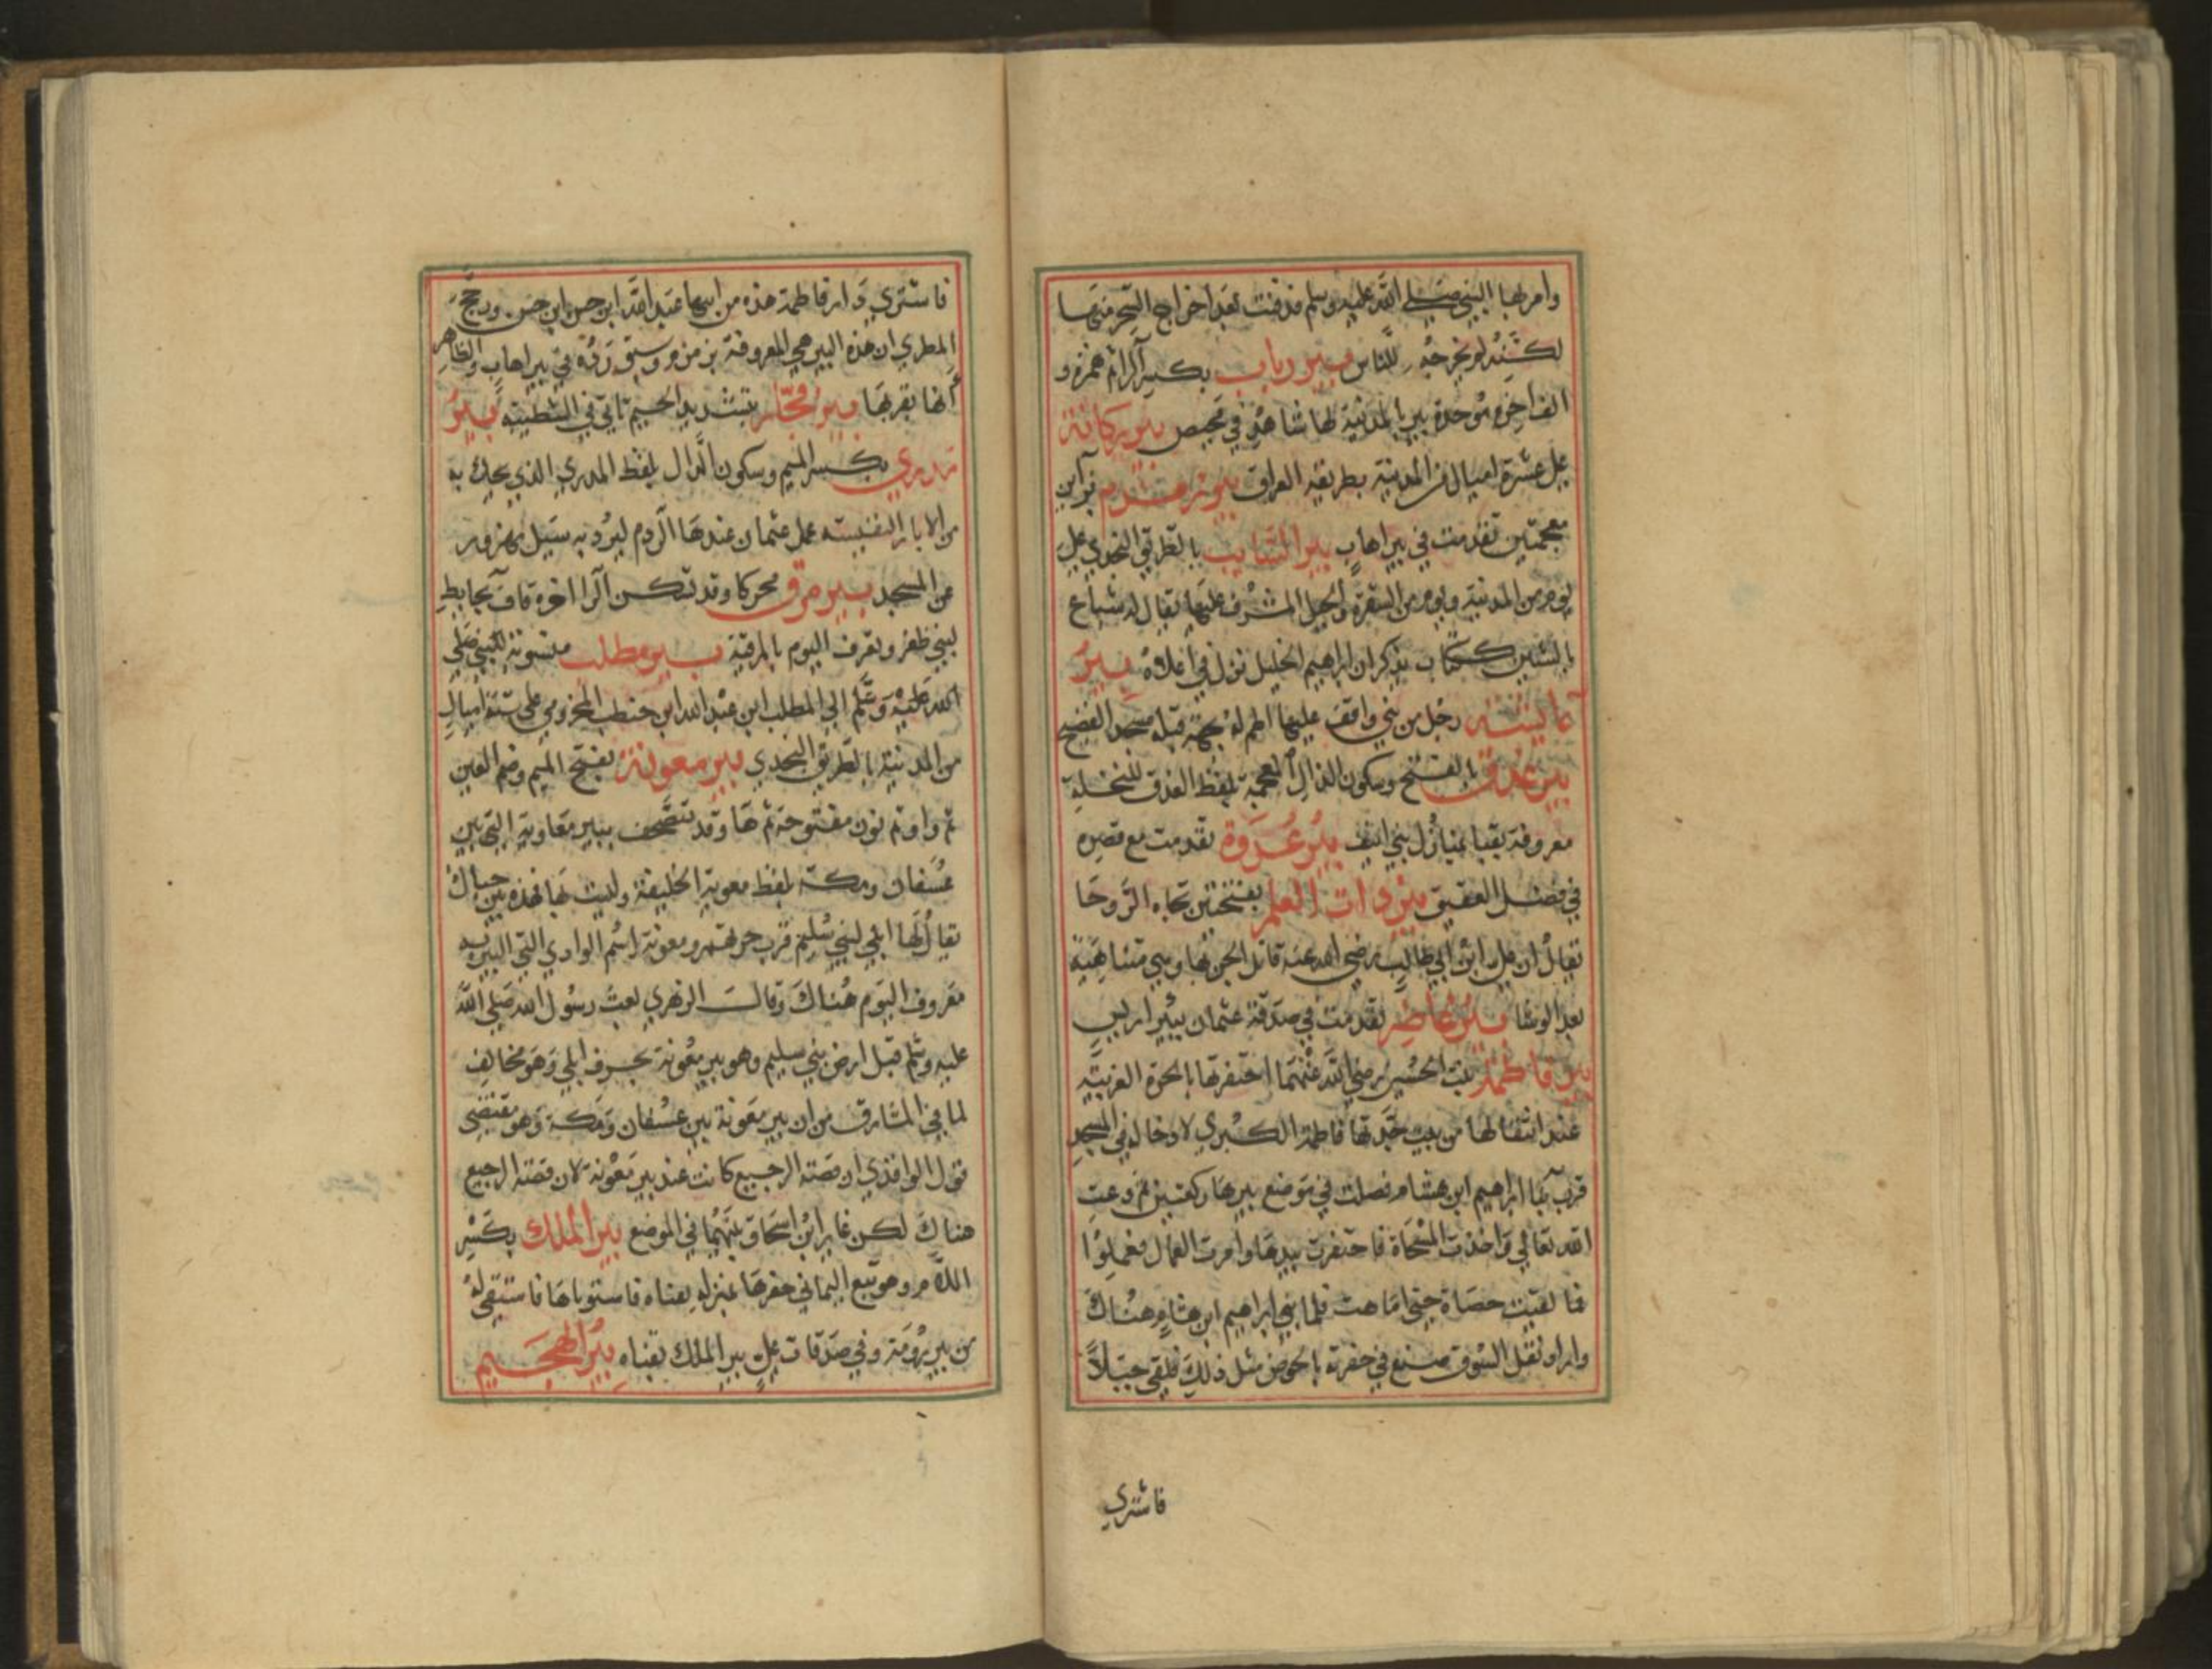 وامر لها النبي صلي الله عليه وسلم فدفنت بعد اخراج السحر منها
لكنه لم يخرجه للناس بير رياب بكسر الراثم همزه و
الف اخره موحدة بير بالمدينة لها شاهد في مخيص بير ركانة
علي عشرة اميال من المدينة بطريق العراق بير زمزم
معجمتين تقدمت في بير اهاب بير السايب بالطريق النجدي علي
يوم من المدينة ويوم من الشقرة والجبل المشرف عليها يقال له شباع
بالشين ككتاب يذكر ان ابراهيم الخليل نزل في اعلاه بير
عايشه رجل من بني واقف عليها اطم له بجهة قبلة مسجد الفضيخ
بير عذق بالفتح وسكون الذال المعجمة بلفظ العذق للنخلة
معروفة بقبا بمنازل بني انيف بير عروة تقدمت مع قصره
في فضل العقيق بير ذات العلم بفتحتين تجاه الروحا
يقال ان علي ابن ابي طالب رضي الله عنه قاتل الجن بها وهي متناهية
بعد الرشا بير غاضر تقدمت في صدقة عثمان ببير اريس
بير فاطمة بنت الحسين رضي الله عنهما احتفرتها بالحرة الغربية
عند انتقالها من بيت جدتها فاطمة الكبري لادخاله في المسجد
قرب بنا ابراهيم ابن هشام فصلت في موضع بيرها ركعتين ثم دعت
الله تعالي واخذت المسحاة فاحتفرت بيدها وامرت العمال فعملوا
فما لقيت حصاة حتي اماهت فلما بني ابراهيم ابن هشام هناك
واراد نقل السوق صنع في حفرته بالحوض مثل ذلك فلقي جبلاً
فاشتري
فاشتري دار فاطمة هذه من ابنها عبد الله ابن حسن ابن حسن ورجح
المطري ان هذه البير هي المعروفة بزمزم وسبق رده في بير اهاب والظاهر
انها بقربها بير فجار بتشديد الجيم تاتي في الشطيبه بير
مدري بكسر الميم وسكون الدال بلفظ المدري الذي يحك به
من الابار النفيسة عمل عثمان عندها الردم ليرد به سيل مهزور
عن المسجد بير مرق محركا وقد تسكن الرا اخره قاف بحايط
لبني ظفر وتعرف اليوم بالمرقية بير مطلب منسوبة للنبي صلي
الله عليه وسلم الي المطلب ابن عبد الله ابن حنطب المخزومي علي ستة اميال
من المدينة بالطريق النجدي بير معونة بفتح الميم وضم العين
ثم واو ثم نون مفتوحة ثم ها وقد تتصحف ببير معاوية التي بين
عسفان ومكة بلفظ معوية الخليفة وليست بها فهذه بين جبال
يقال لها ابلي لبني سليم قرب حرتهم ومعونة اسم الوادي التي البير به
معروف اليوم هناك وقالت الزهري بعث رسول الله صلي الله
عليه وسلم قبل ارض بني سليم وهو بير معونة بجرف ابلي وهو مخالف
لما في المشارق من ان بير معونة بين عسفان ومكة وهو مقتضي
قول الواقدي ان قصة الرجيع كانت عند بير معونة لان قصة الرجيع
هناك لكن غاير ابن اسحاق بينهما في الموضع بير الملك بكسر
اللام وهو تبع اليماني حفرها بمنزله بقناه فاستوباها فاستقي له
من بير رومة وفي صدقات علي بير الملك بقناه بير الهجيم